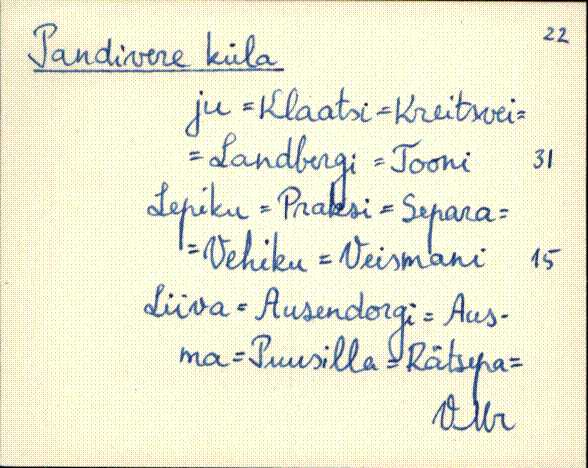 22
Pandivere küla
ju = Klaatsi = Kreitsvei=
= Landbergi = Tooni 31
Lepiku = Praksi = Separa=
= Vehiku = Veismani 15
Liiva = Ausendorgi = Aus-
ma = Puusilla = Rätsepa=
V Mr